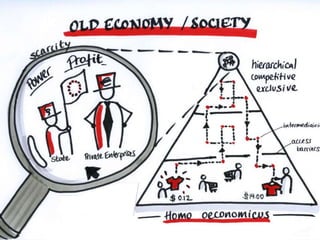 OLD ECONOMY / SOCIETY
scarcity
Power
Profit
hierarchical
competitive
exclusive
State
Private Enterprises
access
barriers
$ 0.12
$ 19.00
Homo oeconomicus